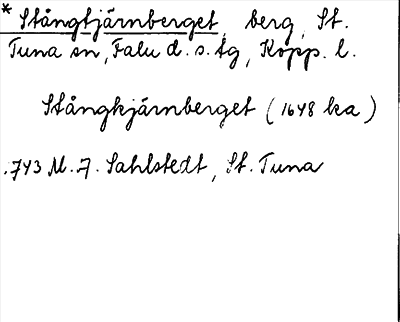 * Stångtjärnberget, berg, St.
Tuna sn, Falu d. s. tg, Kopp. l.
Stångkjärnberget (1648 ka)
.743 M. 7. Sahlstedt, St. Tuna